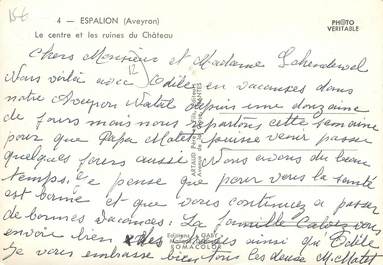 4 — ESPALION (Aveyron)
Le centre et les ruines du Château
PHOTO
VERITABLE
Chers Monsieur et Madame
Nous voilà avec Odile en vacances dans
notre Aveyron Natal depuis une douzaine
de jours mais nous repartons cette semaine
pour que Papa Matet puisse venir passer
quelques jours aussi. Nous avons du beau
temps. Je pense que pour vous la santé
est bonne et que vous continuez a passer
de bonnes vacances. La famille vous
envoie bien des ainsi qu'Odile
Je vous embrasse bien tous les deux M. Matet
ARTAUD Père et Fils, Éditeurs
NANTES
Editions GABY
SOMACOLOR